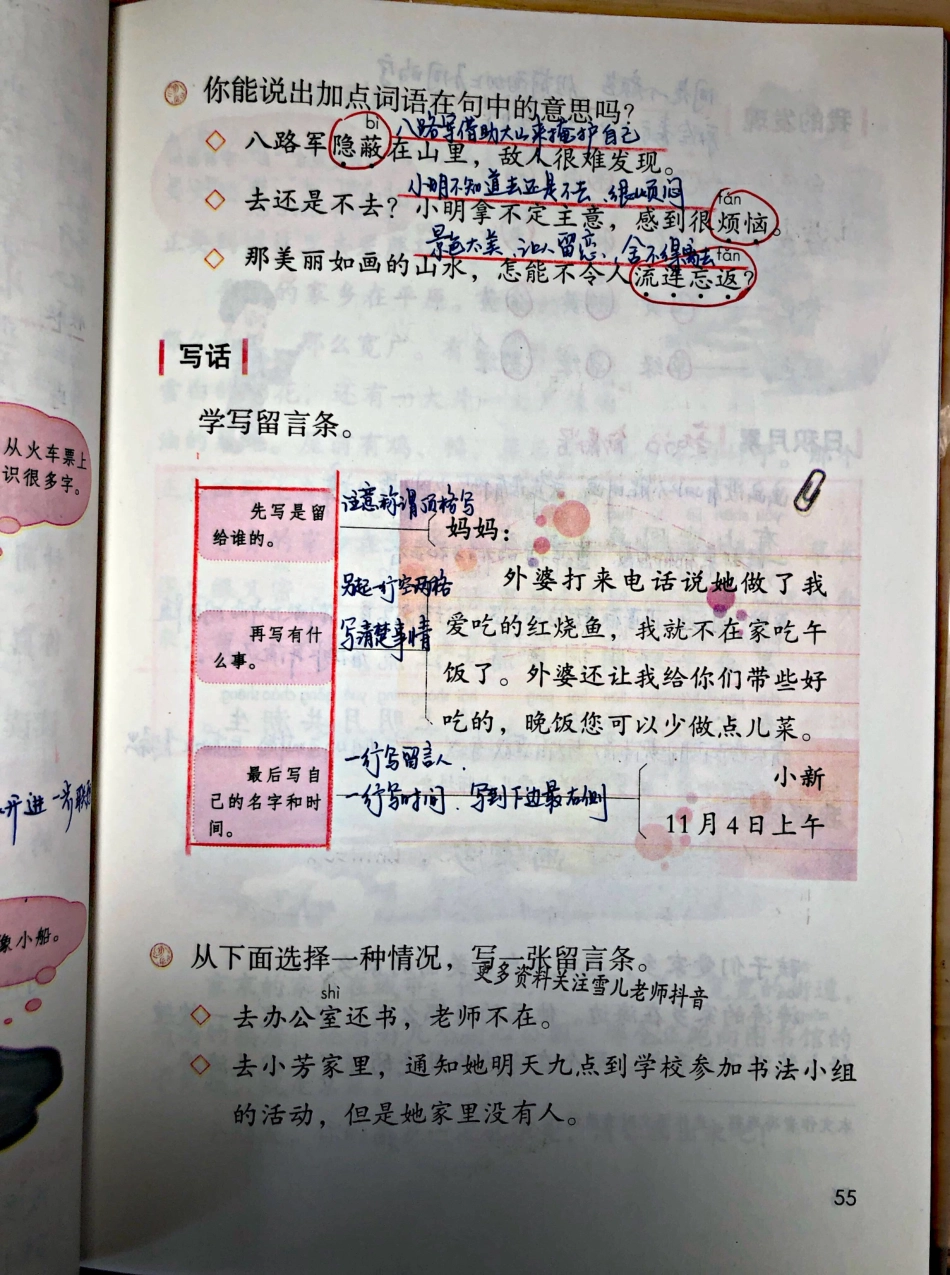 你能说出加点词语在句中的意思吗？
bì
八路军借助大山来掩护自己
八路军隐蔽在山里，敌人很难发现。
小明不知道去还是不去、很烦闷
fán
去还是不去？小明拿不定主意，感到很烦恼。
景色太美、让人留恋、舍不得离去
fǎn
那美丽如画的山水，怎能不令人流连忘返？
写话
学写留言条。
从火车票上
识很多字。
先写是留
给谁的。
注意称谓顶格写
妈妈：
另起一行空两格
外婆打来电话说她做了我
再写有什
么事。
写清楚事情
爱吃的红烧鱼，我就不在家吃午
饭了。外婆还让我给你们带些好
吃的，晚饭您可以少做点儿菜。
最后写自
己的名字和时
间。
一行写留言人．
一行写时间．写到下边最右侧
小新
11月4日上午
像小船。
从下面选择一种情况，写一张留言条。
更多资料关注雪儿老师抖音
shì
去办公室还书，老师不在。
去小芳家里，通知她明天九点到学校参加书法小组
的活动，但是她家里没有人。
55